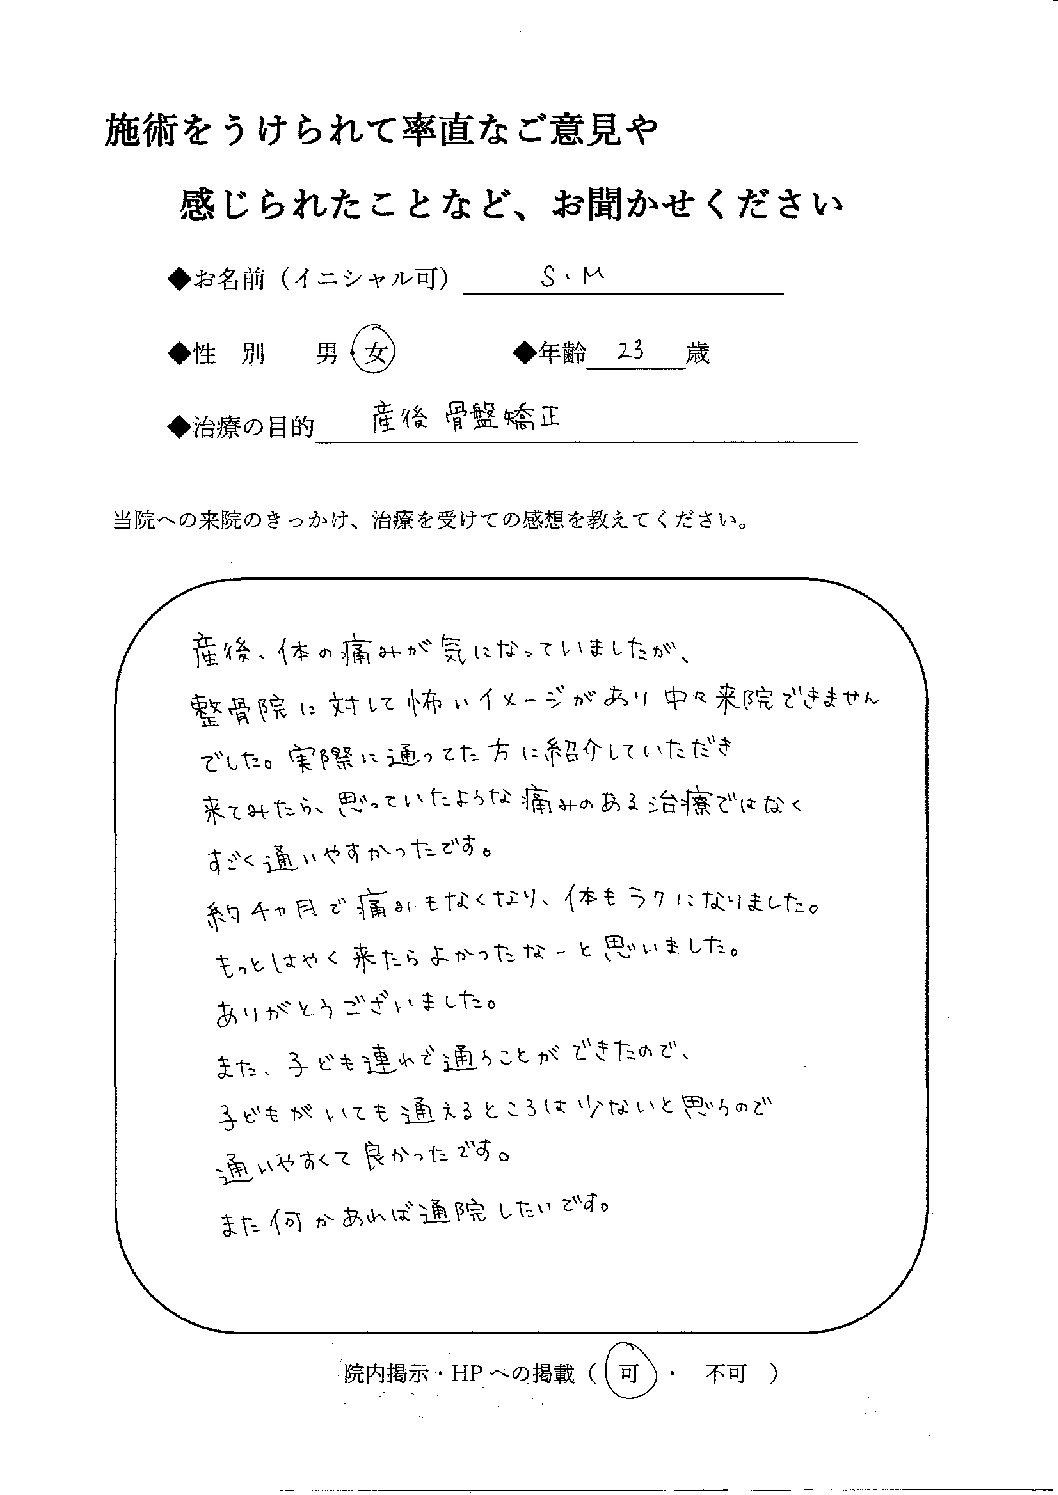 施術をうけられて率直なご意見や
感じられたことなど、お聞かせください
◆お名前（イニシャル可） S・M
◆性　別　　男・女　　◆年齢 23 歳
◆治療の目的 産後 骨盤矯正
当院への来院のきっかけ、治療を受けての感想を教えてください。
産後、体の痛みが気になっていましたが、
整骨院に対して怖いイメージがあり中々来院できません
でした。実際に通ってた方に紹介していただき
来てみたら、思っていたような痛みのある治療ではなく
すごく通いやすかったです。
約4カ月で痛みもなくなり、体もラクになりました。
もっとはやく来たらよかったなーと思いました。
ありがとうございました。
また、子ども連れで通うことができたので、
子どもがいても通えるところは少ないと思うので
通いやすくて良かったです。
また何かあれば通院したいです。
院内掲示・HPへの掲載（ 可 ・ 不可 ）